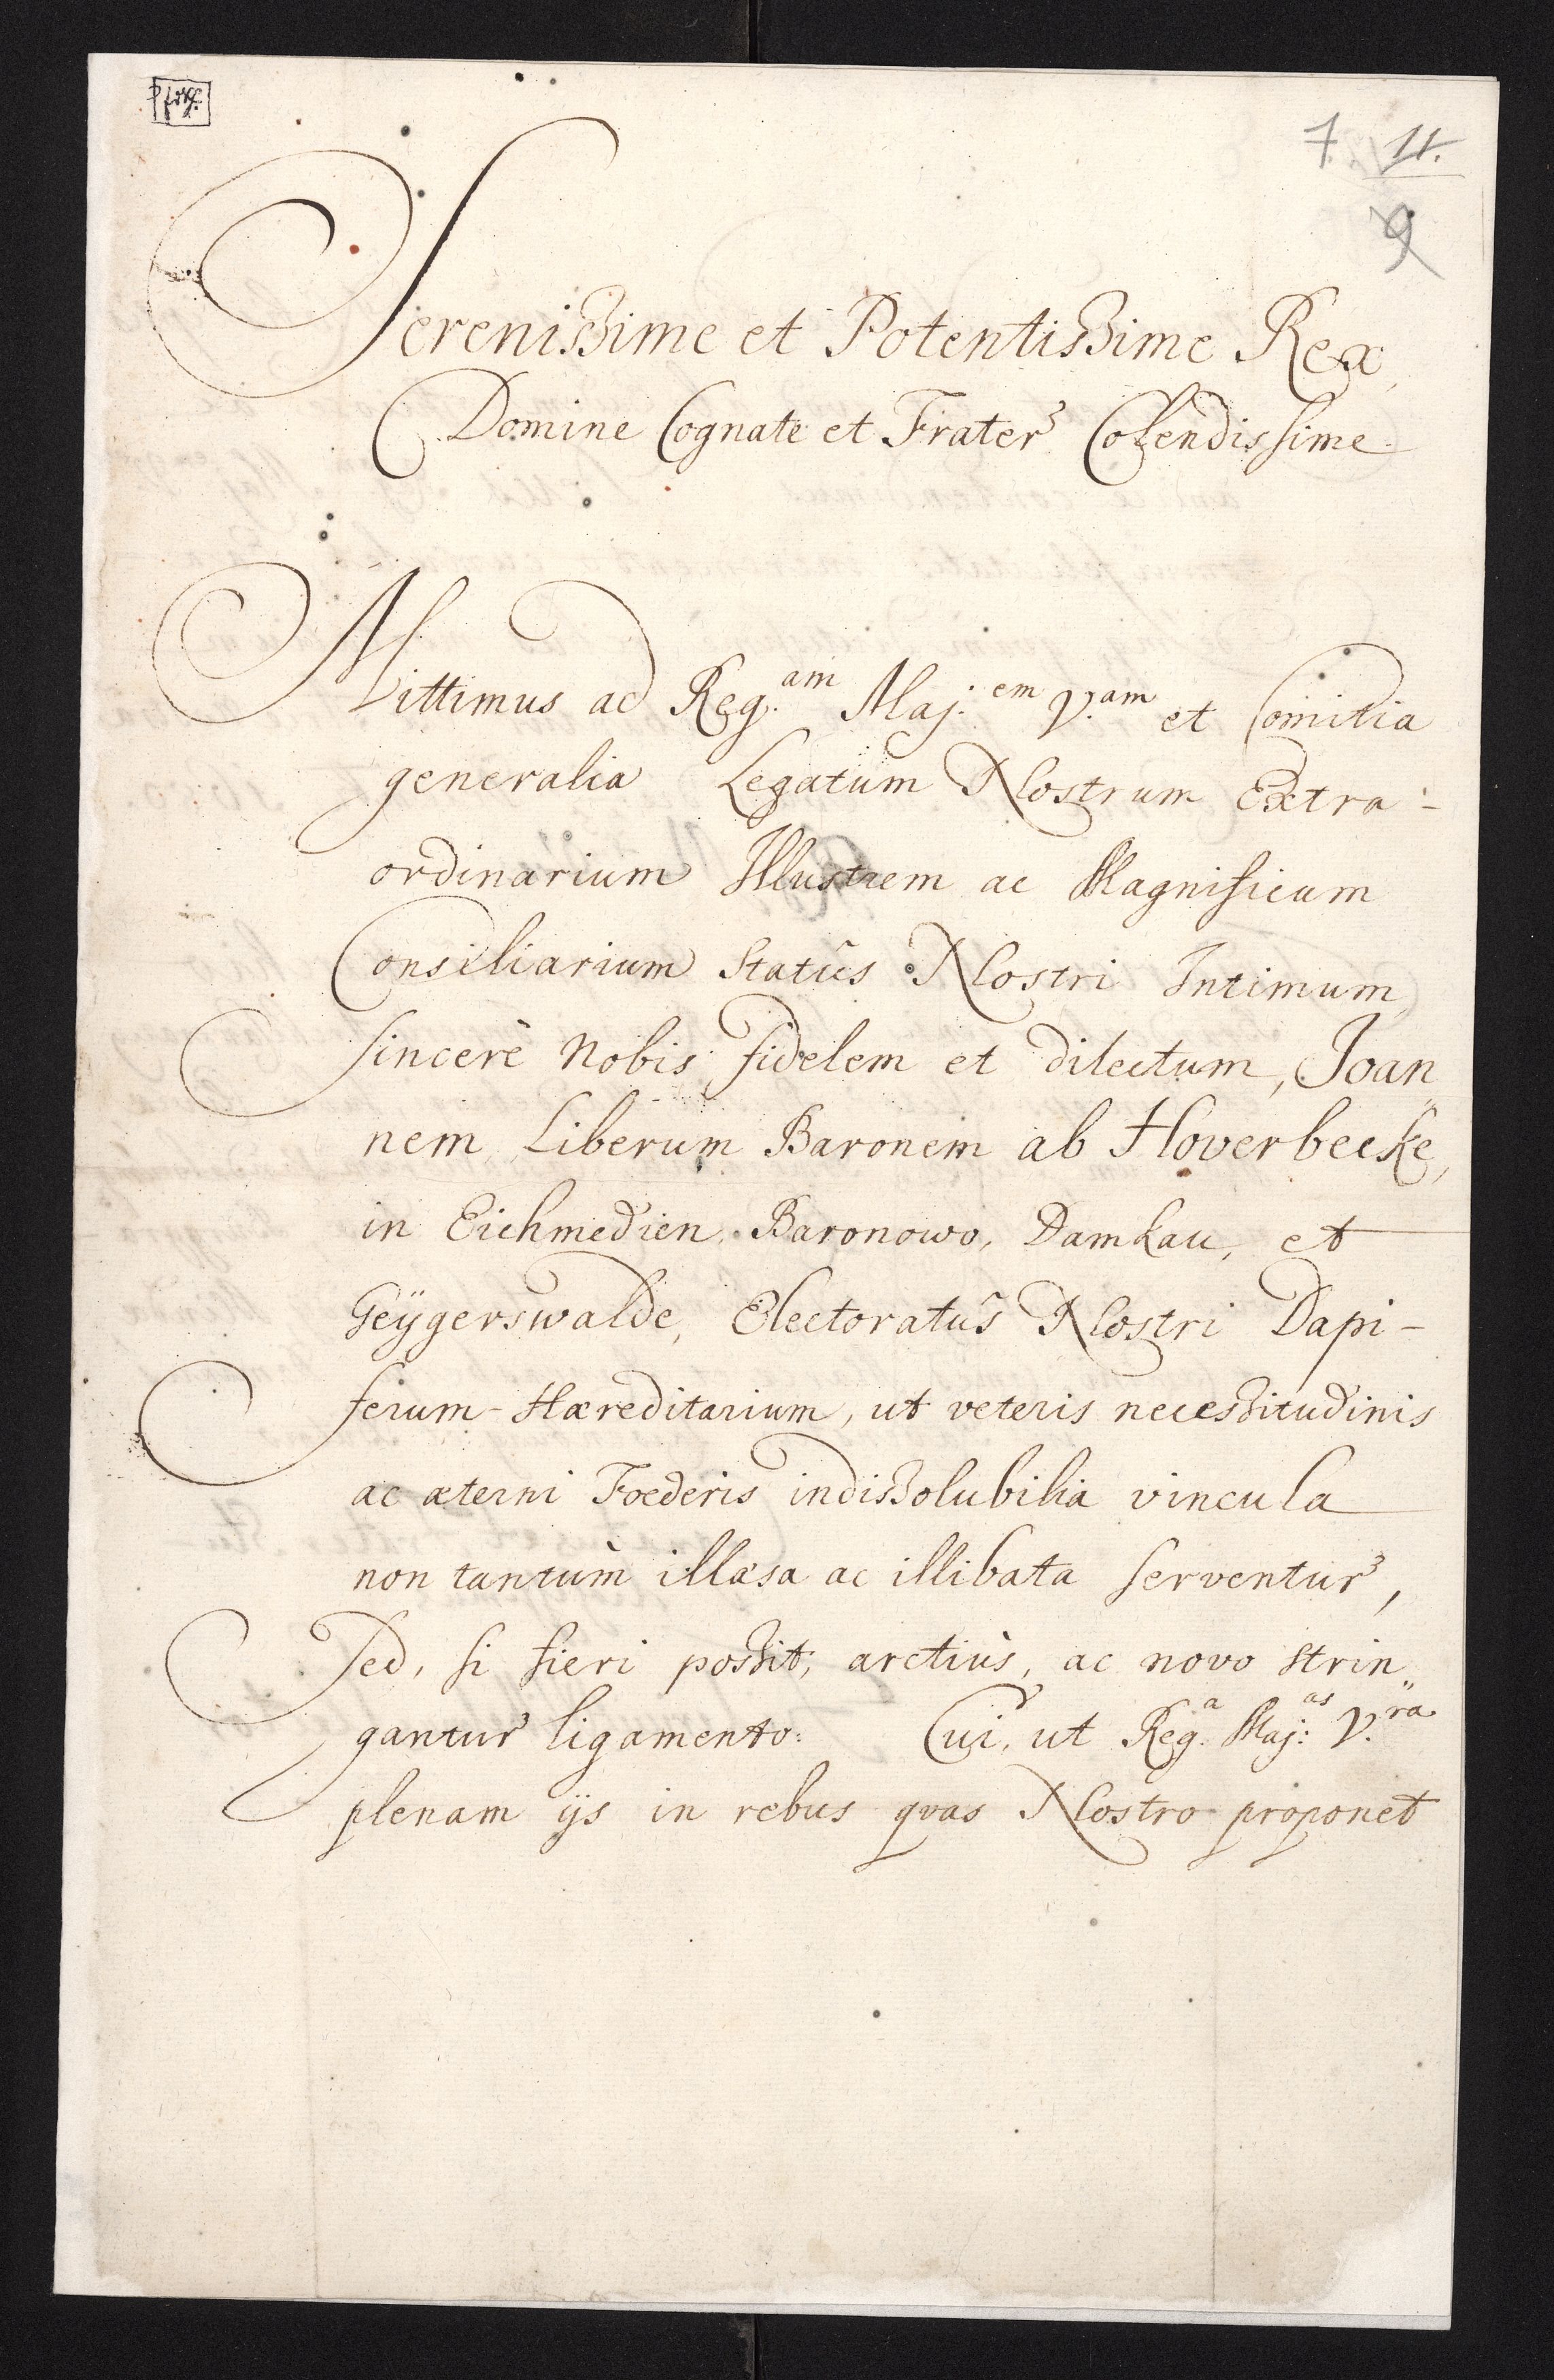 7. 11.
9
Serenissime et Potentissime Rex,
Domine Cognate et Frater Colendissime.
Mittimus ad Reg.am Maj.em V.am et Comitia
generalia Legatum Nostrum Extra-
ordinarium Illustrem ac Magnificum
Consiliarium Statûs Nostri Intimum,
sincerè Nobis fidelem et dilectum, Joan„
nem Liberum Baronem ab Hoverbecke,
in Eichmedien, Baronowo, Damkau, et
Geÿgerswalde, Electoratûs Nostri Dapi-
ferum-Hæreditarium, ut veteris necessitudinis
ac æterni Foederis indissolubilia vincula
non tantùm illæsa ac illibata serventur,
sed, si fieri possit, arctiùs, ac novo strin„
gantur ligamento. Cui, ut Reg.a Maj.as V.ra
plenam ijs in rebus qvas Nostro proponet